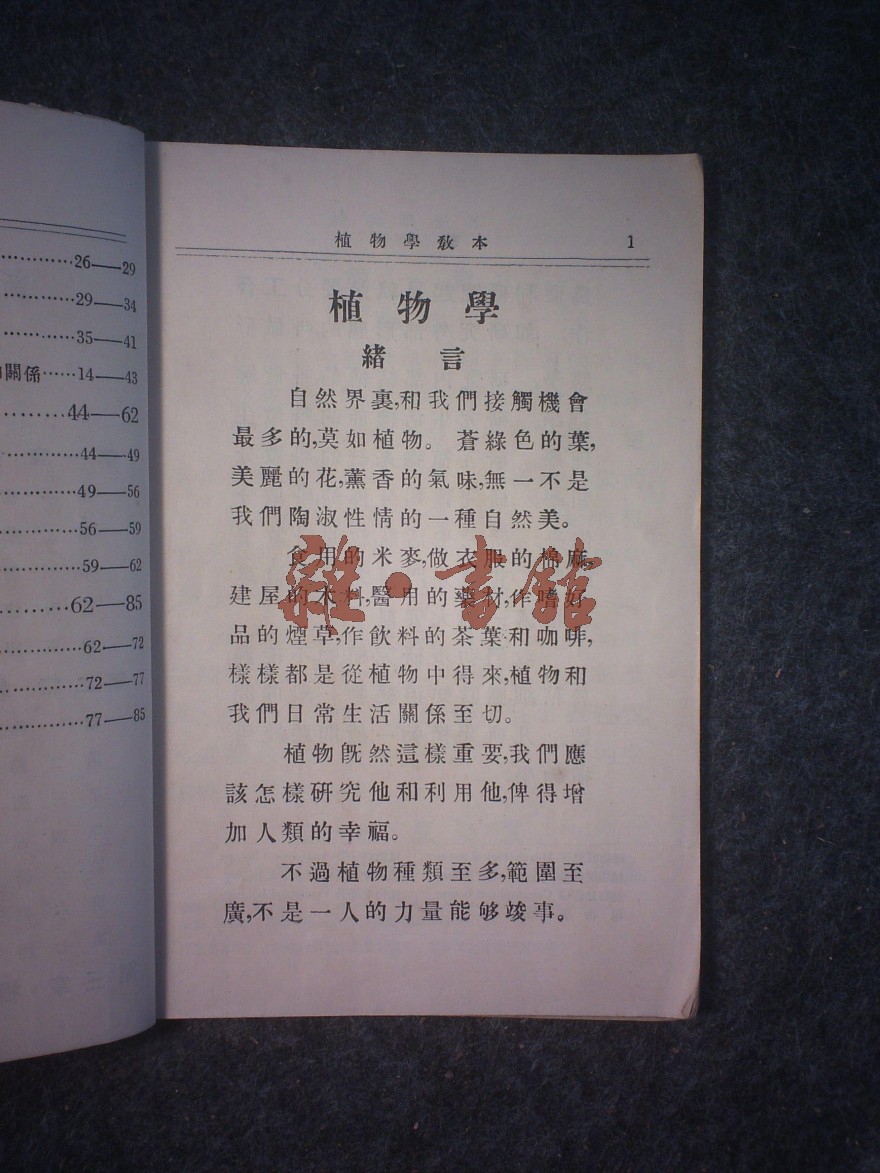 26—29
29—34
35—41
關係……14—43
44—62
44—49
49—56
56—59
59—62
62—85
62—72
72—77
77—85
植物學敎本 1
植物學
緒言
自然界裏,和我們接觸機會
最多的,莫如植物。蒼綠色的葉,
美麗的花,薰香的氣味,無一不是
我們陶淑性情的一種自然美。
食用的米麥,做衣服的棉麻,
建屋的木料,醫用的藥材,作嗜好
品的煙草,作飲料的茶葉和咖啡,
樣樣都是從植物中得來,植物和
我們日常生活關係至切。
植物旣然這樣重要,我們應
該怎樣研究他和利用他,俾得增
加人類的幸福。
不過植物種類至多,範圍至
廣,不是一人的力量能够竣事。
雜·書館